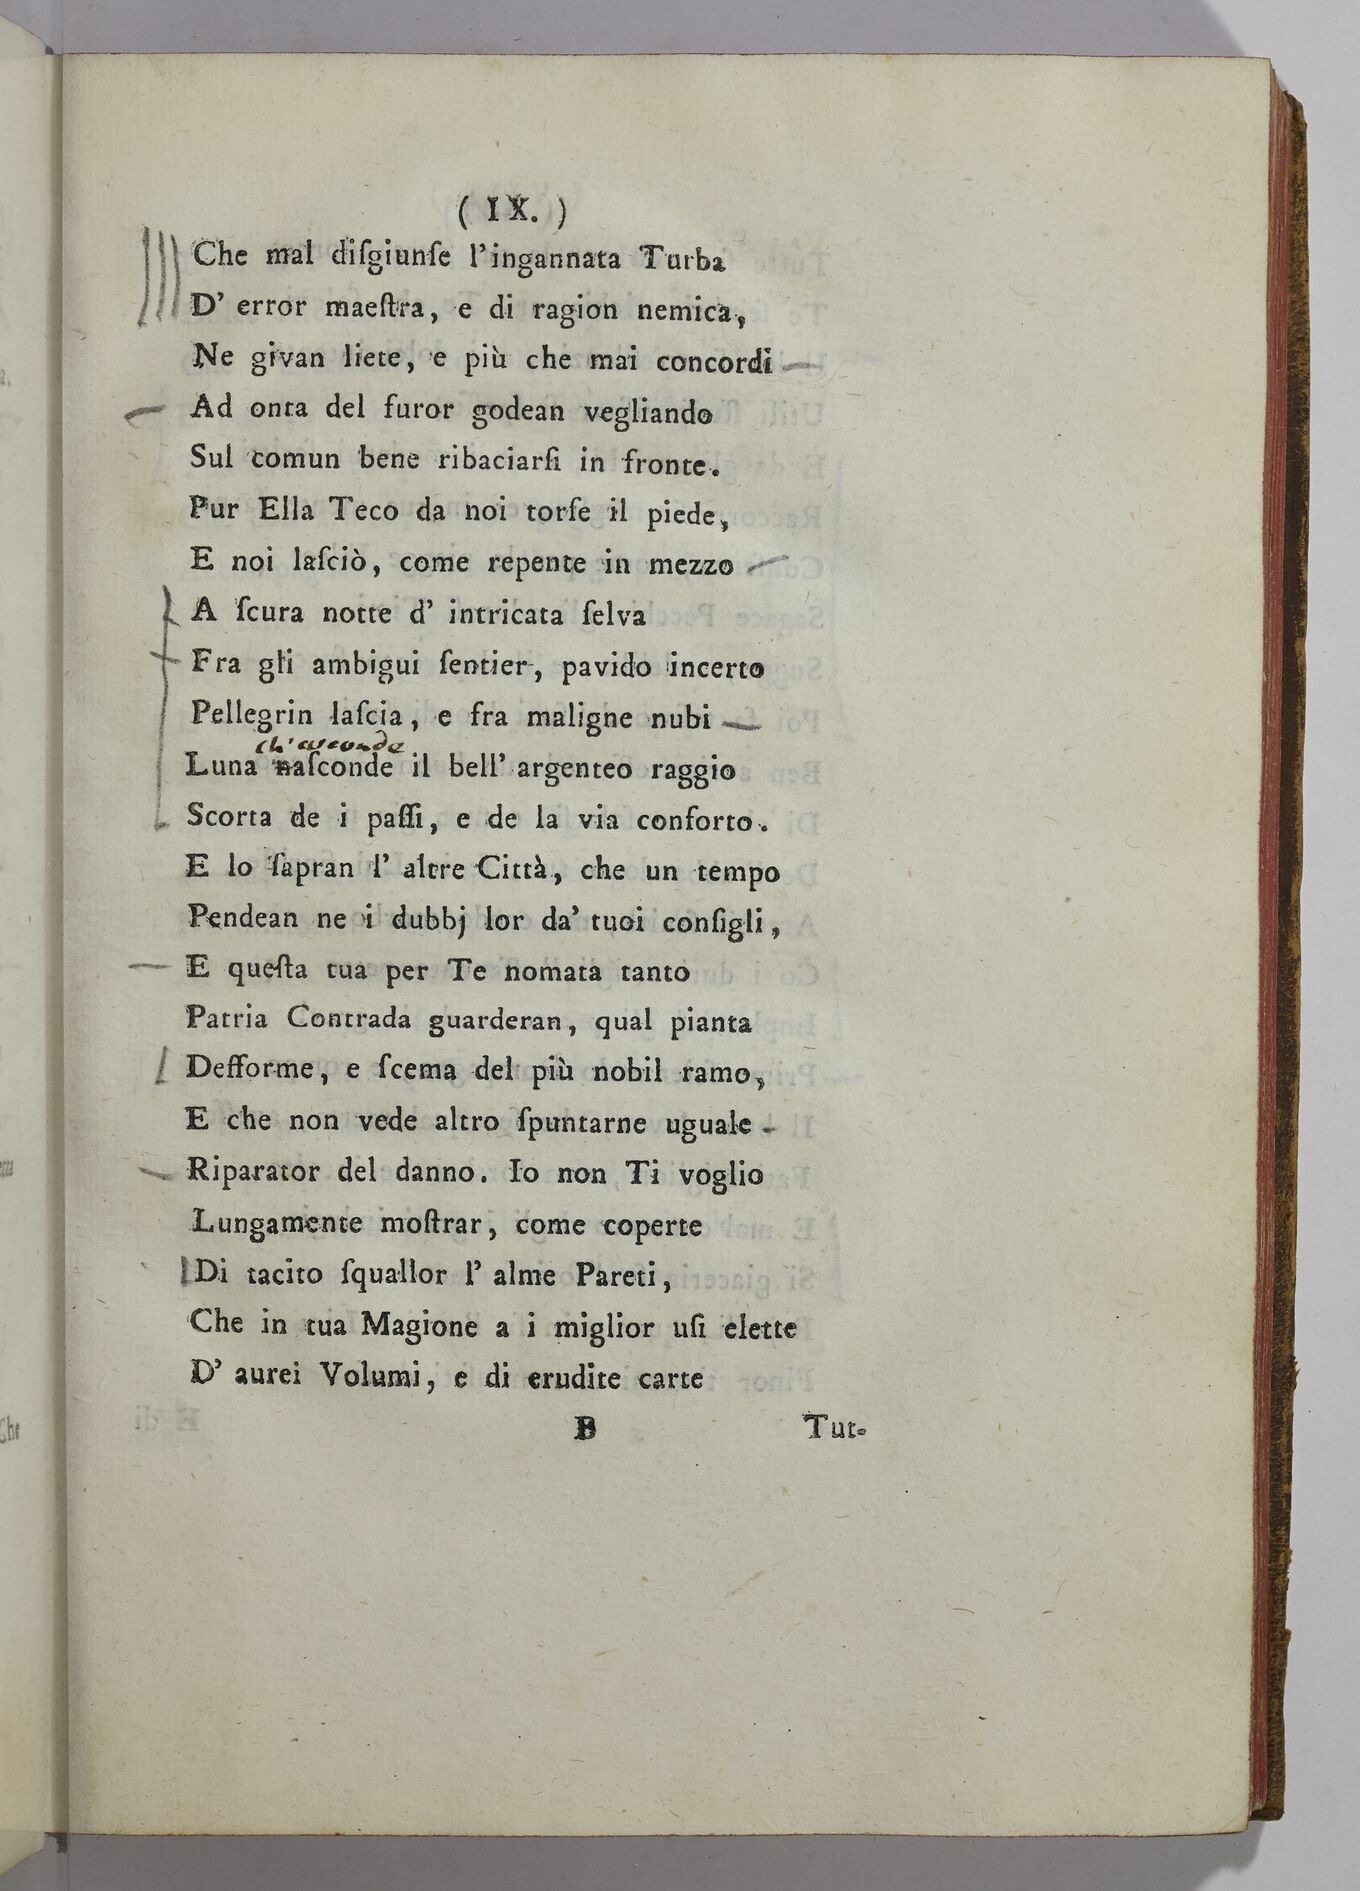 ( IX. )
Che mal diſgiunſe l'ingannata Turba
D' error maeſtra, e di ragion nemica,
Ne givan liete, e più che mai concordi
Ad onta del furor godean vegliando
Sul comun bene ribaciarſi in fronte.
Pur Ella Teco da noi torſe il piede,
E noi laſciò, come repente in mezzo
A ſcura notte d' intricata ſelva
Fra gli ambigui ſentier, pavido incerto
Pellegrin laſcia, e fra maligne nubi
ch'asconde
Luna naſconde il bell' argenteo raggio
Scorta de i paſſi, e de la via conforto.
E lo ſapran l' altre Città, che un tempo
Pendean ne i dubbj lor da' tuoi conſigli,
E queſta tua per Te nomata tanto
Patria Contrada guarderan, qual pianta
Defforme, e ſcema del più nobil ramo,
E che non vede altro ſpuntarne uguale
Riparator del danno. Io non Ti voglio
Lungamente moſtrar, come coperte
Di tacito ſquallor l' alme Pareti,
Che in tua Magione a i miglior uſi elette
D' aurei Volumi, e di erudite carte
B Tut-
Che